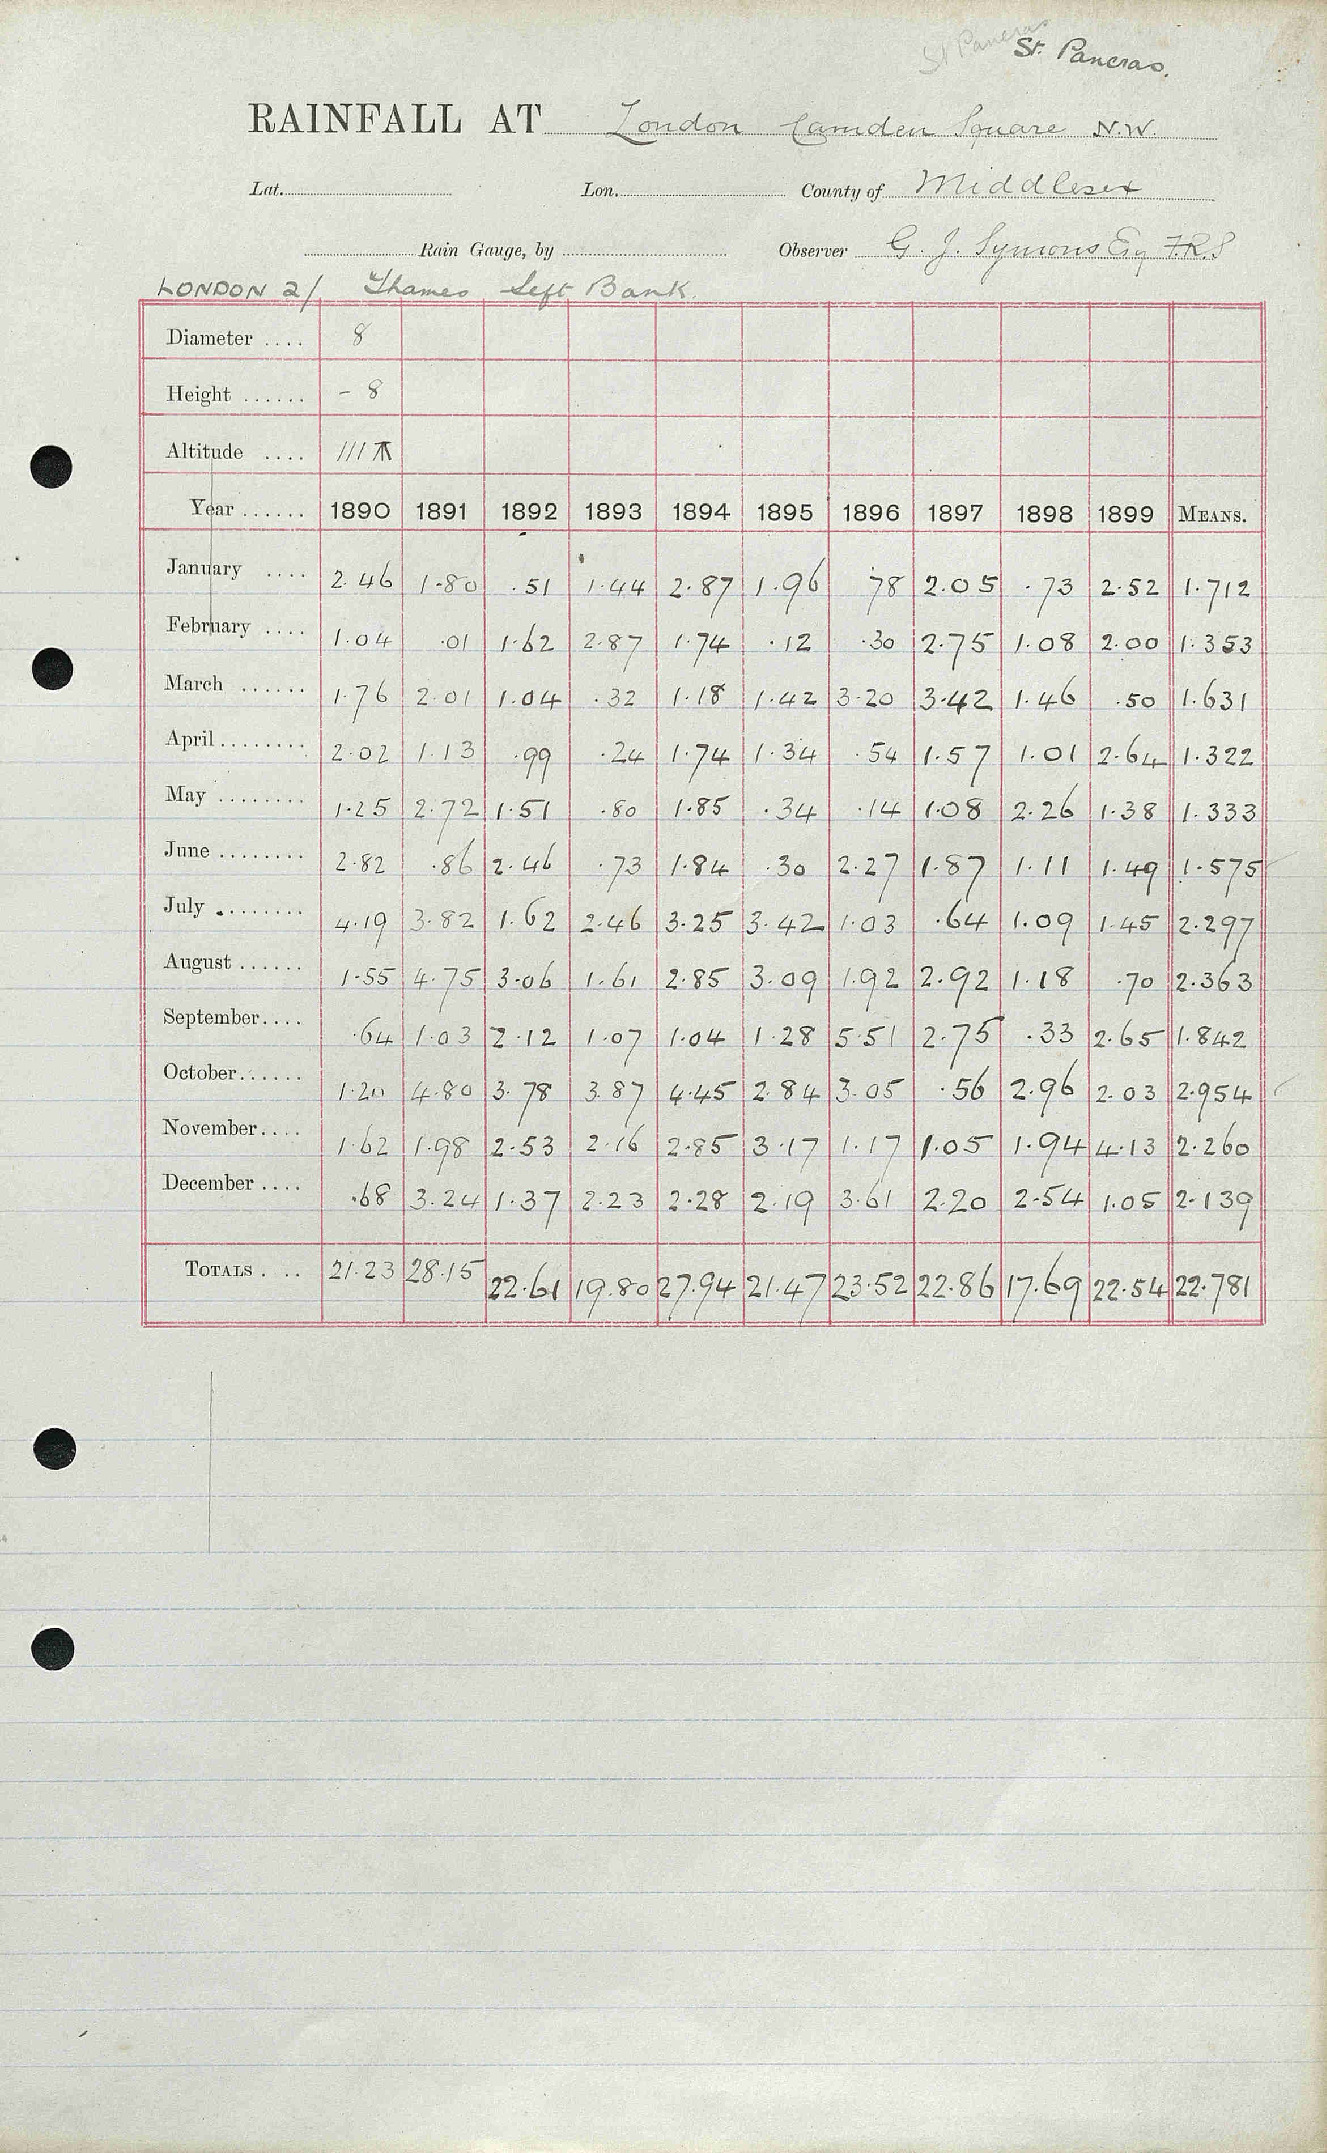 St Pancras
St. Pancras.
RAINFALL AT London Camden Square N.W.
Lat. Lon. County of Middlesex
Rain Gauge, by Observer G. J. Symons Esq F.R.S
LONDON 2/ Thames Left Bank
Diameter .... 8
Height ...... - 8
Altitude .... 111
Year ...... 1890 1891 1892 1893 1894 1895 1896 1897 1898 1899 MEANS.
January .... 2.46 1.80 .51 1.44 2.87 1.96 .78 2.05 .73 2.52 1.712
February .... 1.04 .01 1.62 2.87 1.74 .12 .30 2.75 1.08 2.00 1.353
March ...... 1.76 2.01 1.04 .32 1.18 1.42 3.20 3.42 1.46 .50 1.631
April ........ 2.02 1.13 .99 .24 1.74 1.34 .54 1.57 1.01 2.64 1.322
May ........ 1.25 2.72 1.51 .80 1.85 .34 .14 1.08 2.26 1.38 1.333
June ........ 2.82 .86 2.46 .73 1.84 .30 2.27 1.87 1.11 1.49 1.575
July ........ 4.19 3.82 1.62 2.46 3.25 3.42 1.03 .64 1.09 1.45 2.297
August ...... 1.55 4.75 3.06 1.61 2.85 3.09 1.92 2.92 1.18 .70 2.363
September .... .64 1.03 2.12 1.07 1.04 1.28 5.51 2.75 .33 2.65 1.842
October ...... 1.20 4.80 3.78 3.87 4.45 2.84 3.05 .56 2.96 2.03 2.954
November .... 1.62 1.98 2.53 2.16 2.85 3.17 1.17 1.05 1.94 4.13 2.260
December .... .68 3.24 1.37 2.23 2.28 2.19 3.61 2.20 2.54 1.05 2.139
TOTALS .... 21.23 28.15 22.61 19.80 27.94 21.47 23.52 22.86 17.69 22.54 22.781